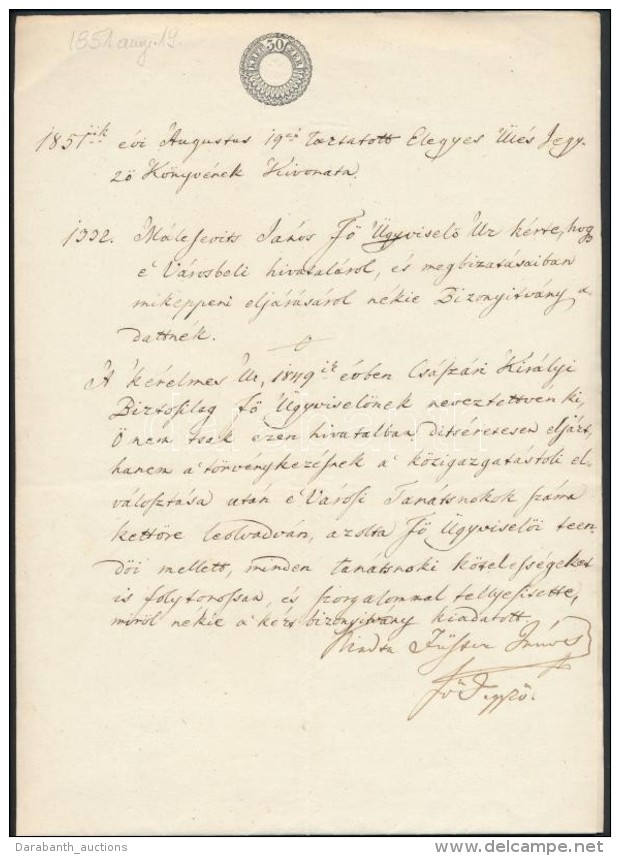 1851 aug. 19.
30
1851ik évi Augustus 19én Tartatott Elegyes Ülés Jegy-
ző Könyvének Kivonata.
1332. János Fő Ügyviselő Ur kérte, hogy
é Városbeli hivataláról, és megbizatásaiban
miképpeni eljárásáról nékie Bizonyitvány a-
dattnék.
A kérelmes Ur, 1849ik évben Császári Királyi
Biztosilag Fő Ügyviselőnek neveztettvén ki,
Ő nem tsak ezen hivatalban ditséretesen eljárt,
hanem a' törvénykezésnek a' közigazgatástóli el-
válosztása után é Városi Tanátsnokok száma
kettőre leolvadván, azolta Fő Ügyviselői teen-
dői mellett, minden tanátsnoki kötelességeket
is folytonossan, és szorgalommal tellyesitette,
miről nékie a' kért bizonyitvány kiadatott.
Kiadta János
Fő Jegyző.
Darabanth_auctions